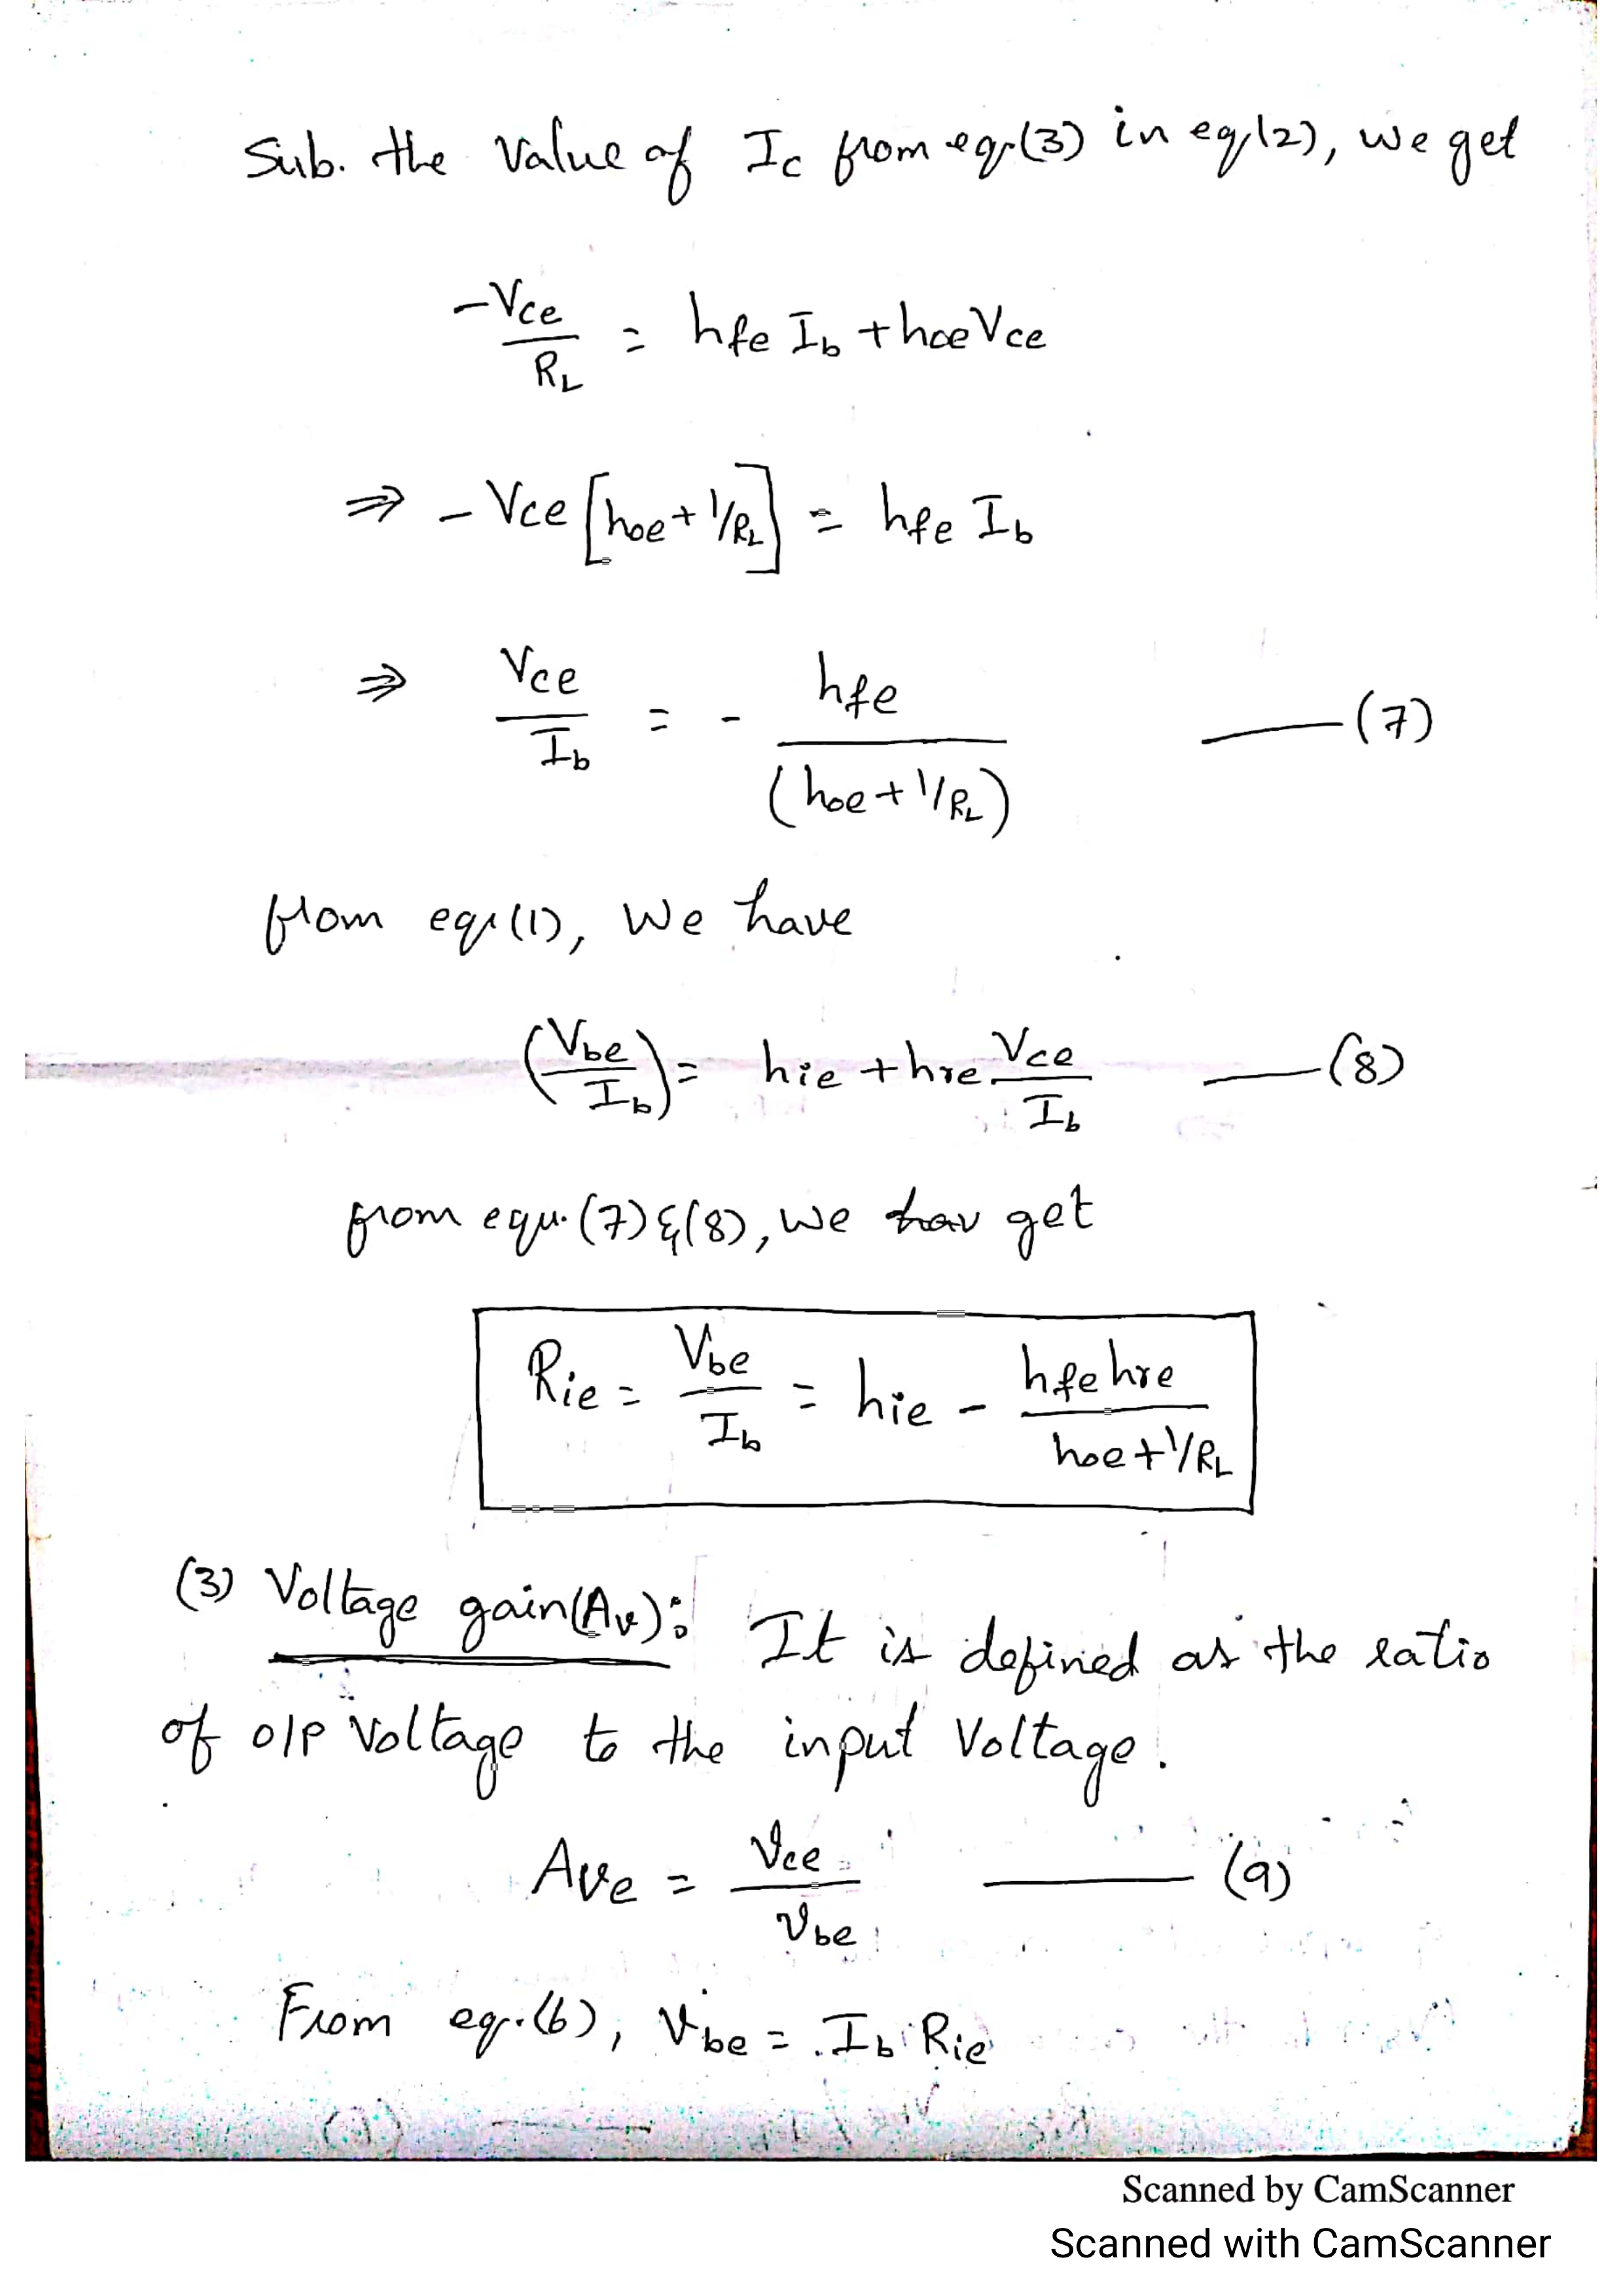 Sub. the value of Ic from eqn(3) in eq(2), we get
-Vce/RL = hfe Ib + hoe Vce
⇒ - Vce [hoe + 1/RL] = hfe Ib
⇒ Vce/Ib = - hfe/(hoe + 1/RL) —(7)
from eqn(1), we have
(Vbe/Ib) = hie + hre Vce/Ib —(8)
from equ. (7) & (8), we get
Rie = Vbe/Ib = hie - hfe hre/hoe + 1/RL
(3) Voltage gain (Av): It is defined as the ratio
of o/p Voltage to the input Voltage.
Ave = Vce/Vbe —(9)
From eq.(6), Vbe = Ib Rie
Scanned by CamScanner
Scanned with CamScanner